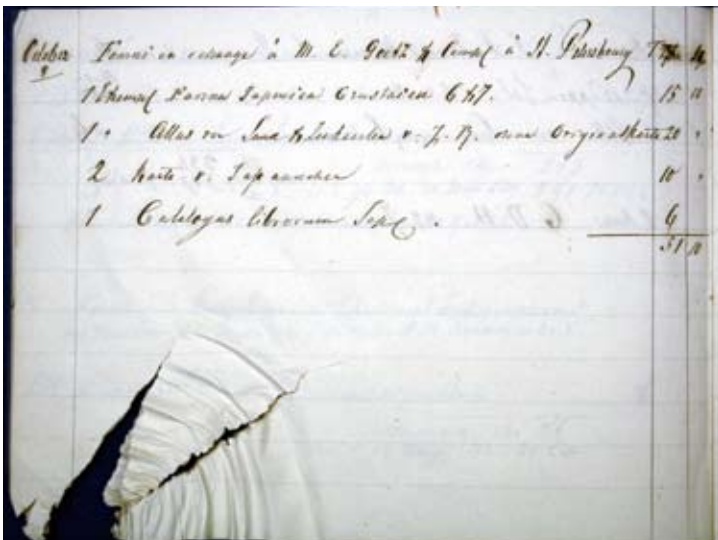 October Fourni en échange à M. E. Goetz & Comp à St. Petersbourg
9
1 Exempl Fauna Japonica Crustacea 6 & 7. 15 10
1 " Atlas von Land & Seekarten v. J. B. ohne Originalkarte 20 "
2 Karte v. Japan 10 "
1 Catalogus librorum Jap. 6
51 10